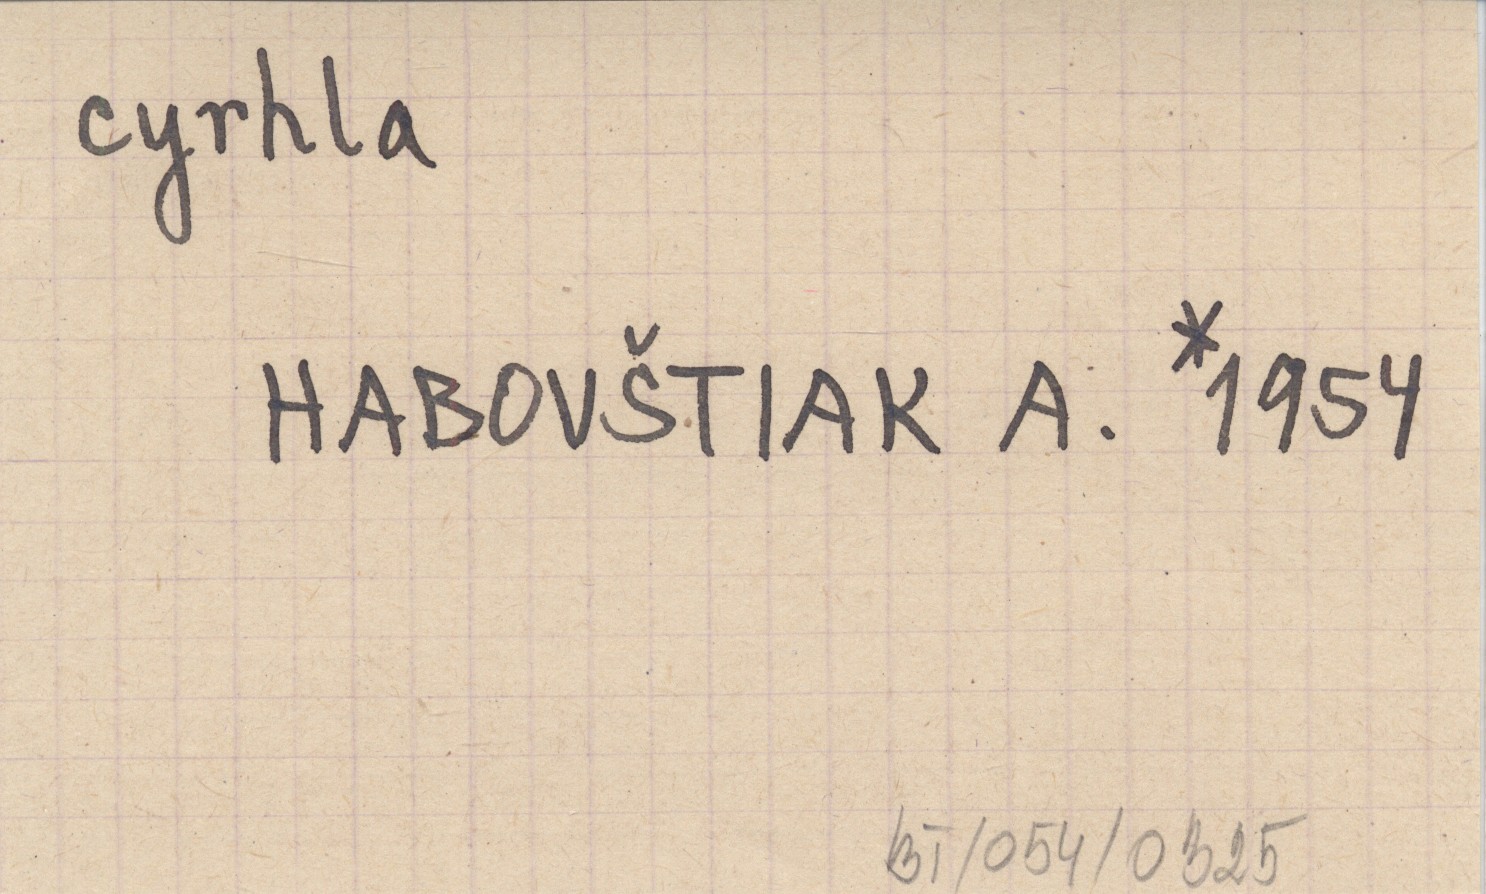 cyrhla
HABOVŠTIAK A. *1954
BI/054/0325